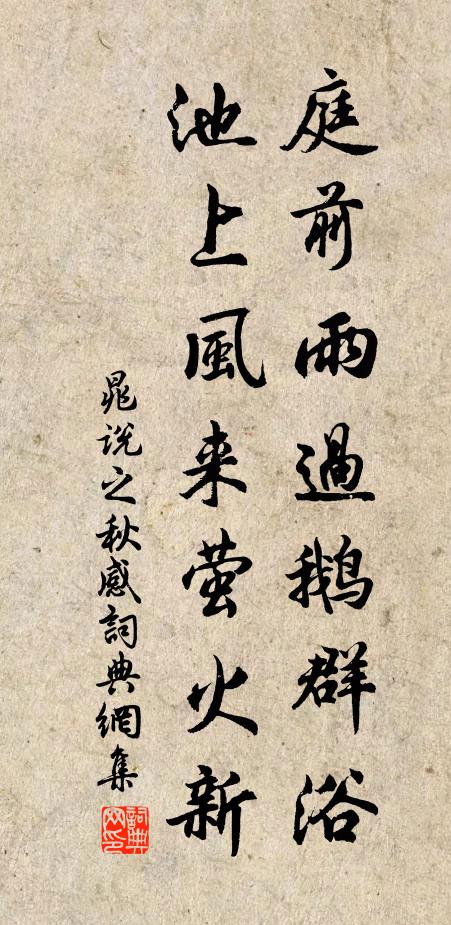 庭前雨過鵝群浴
池上風来萤火新
晁說之秋感詞典網集
詞典网印